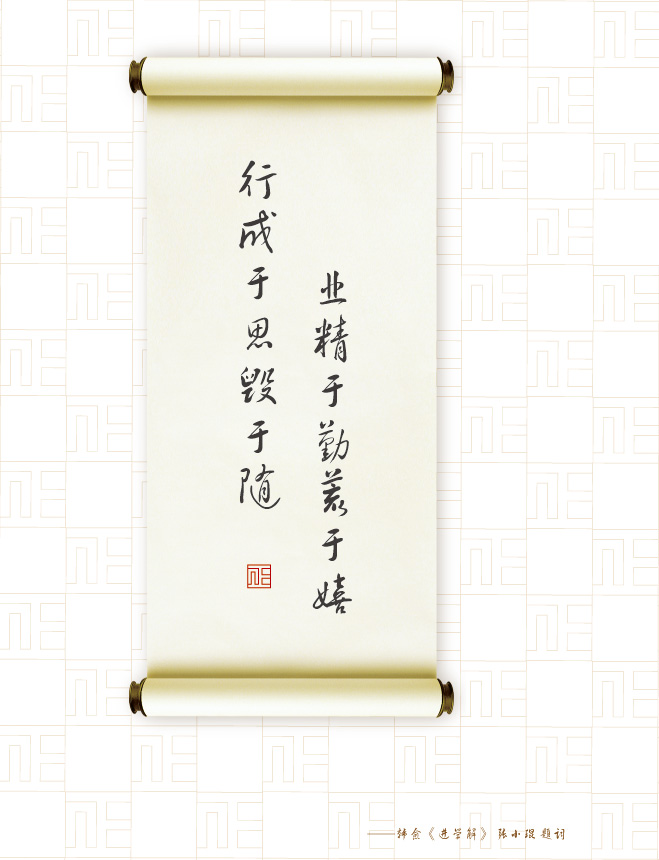 业精于勤荒于嬉
行成于思毁于随
——韩愈《进学解》 张小琨题词